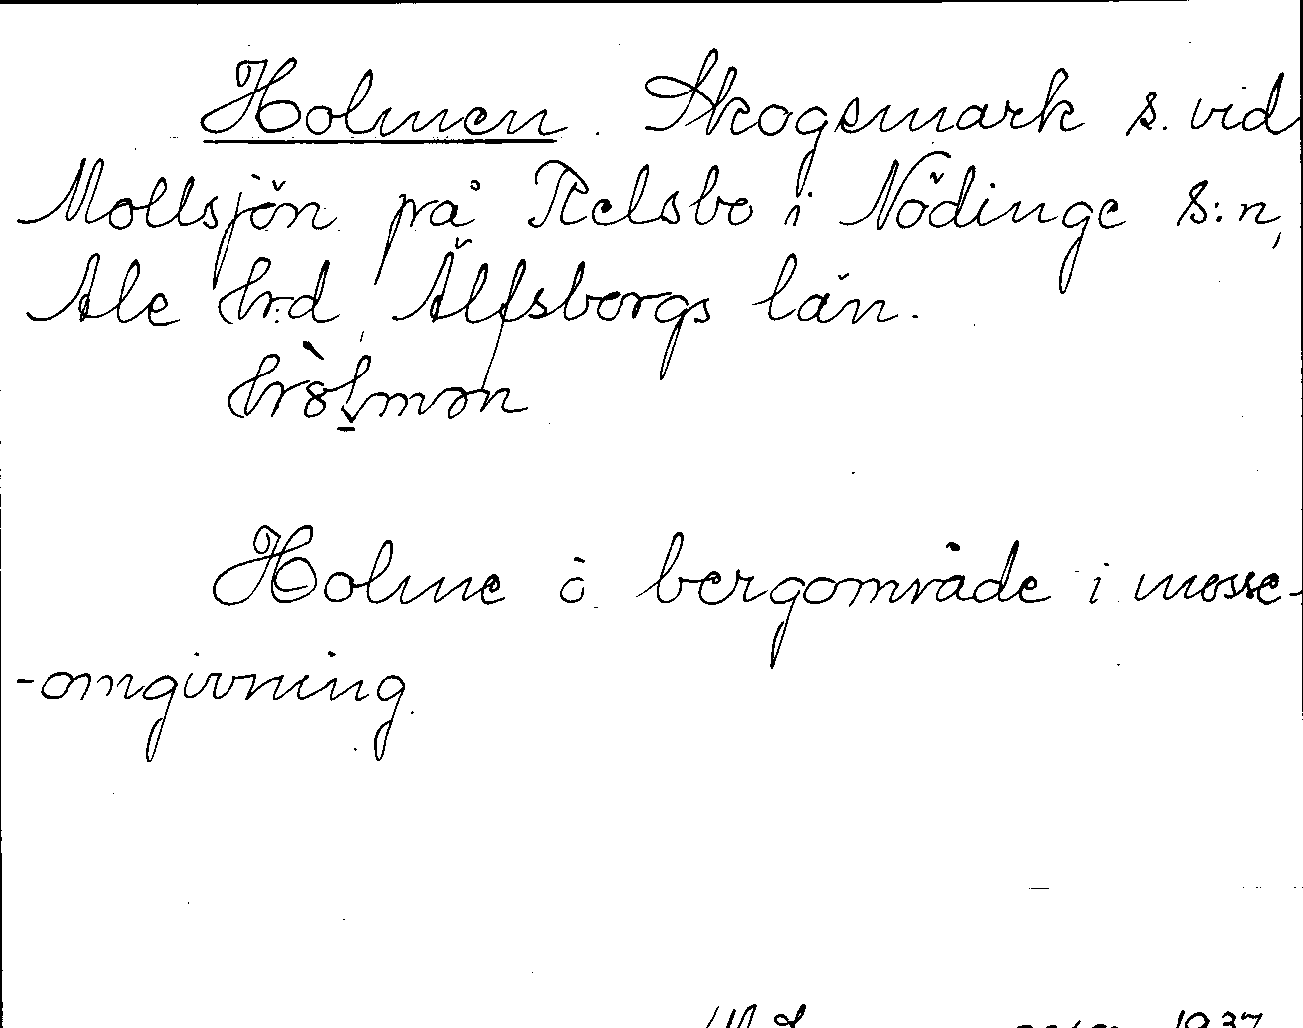 Holmen. Skogsmark s. vid
Mollsjön på Relsbo i Nödinge s:n,
Ale hrd, Älfsborgs län.
Holme o bergområde i mosse-
-omgivning.
1937